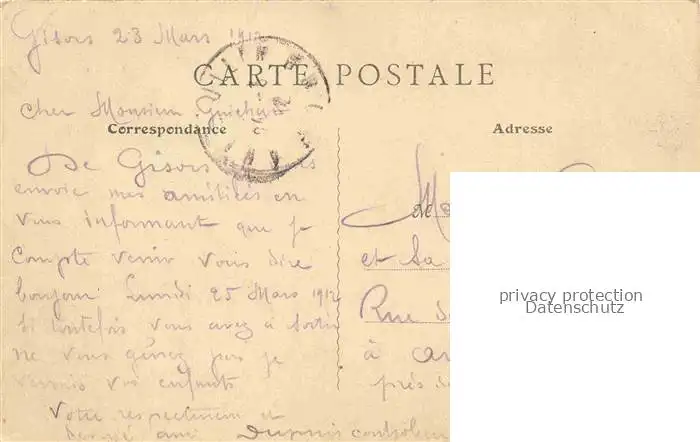 Gisors 23 Mars 1912
CARTE POSTALE
Cher Monsieur Guichard
Correspondance
Adresse
De Gisors
envoie mes amitiées en
vous informant que je
compte venir vous dire
bonjour Lundi 25 Mars 1912
Si toutefois vous avez à sortir
ne vous gênez pas je
verrais vos enfants
Votre respectueux et
dévoué ami Dupuis contrôleur
et Sa
Rue
à
près
privacy protection
Datenschutz